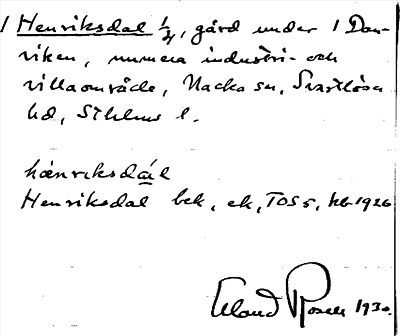 1 Henriksdal 1/4, gård under 1 Dan-
viken, numera industri- och
villaområde, Nacka sn, Svartlösa
hd, Sthlms l.
hänriksdál
Henriksdal bek, ek, TOS 5, hbr 1926
Erland Rosell 1930.